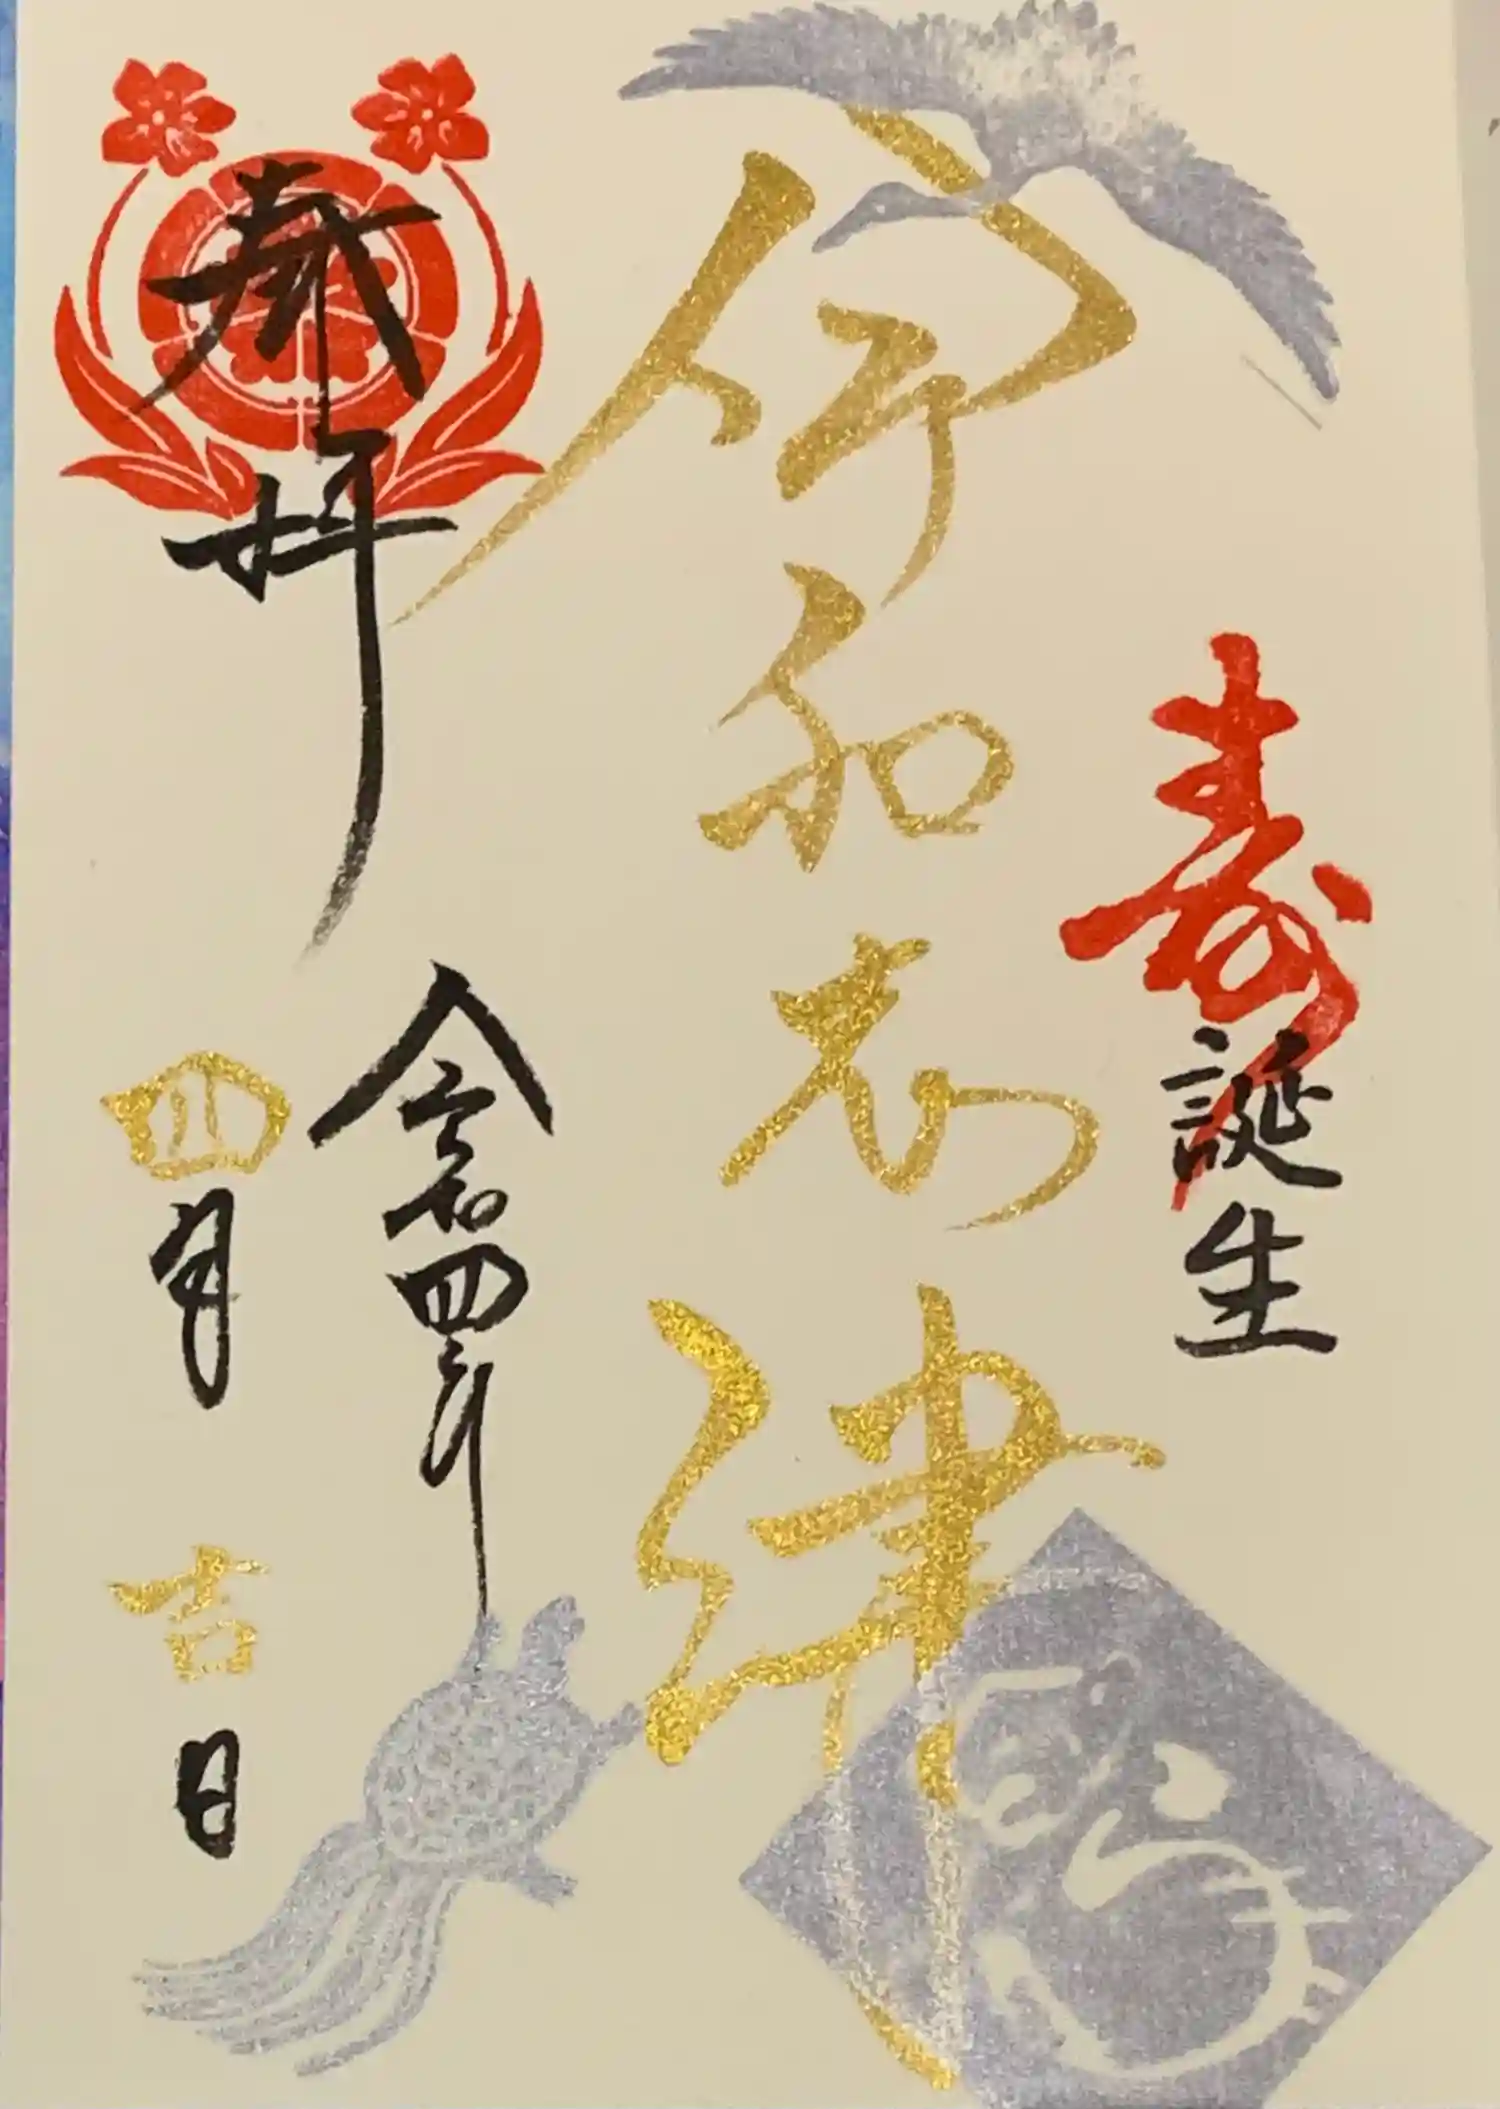 寿
誕生
伊和志津
奉拝
令和四年
四月吉日